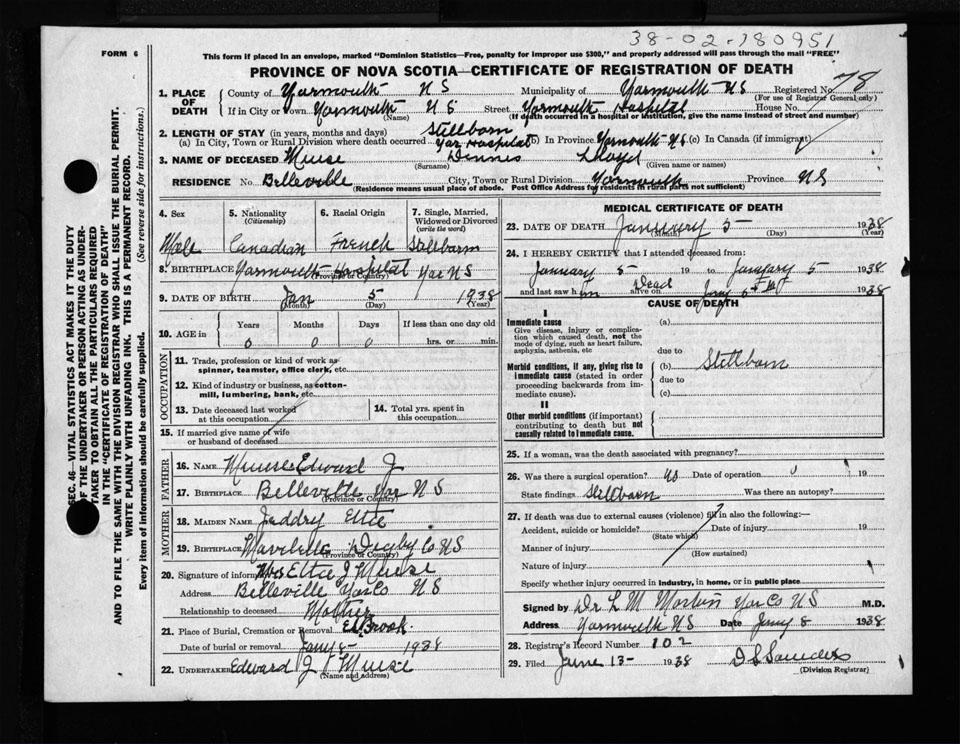 38-02-180951
FORM 6
This form if placed in an envelope, marked "Dominion Statistics—Free, penalty for improper use $300," and properly addressed will pass through the mail "FREE"
PROVINCE OF NOVA SCOTIA—CERTIFICATE OF REGISTRATION OF DEATH
SEC. 46—VITAL STATISTICS ACT MAKES IT THE DUTY
OF THE UNDERTAKER OR PERSON ACTING AS UNDER-
TAKER TO OBTAIN ALL THE PARTICULARS REQUIRED
IN THE "CERTIFICATE OF REGISTRATION OF DEATH"
AND TO FILE THE SAME WITH THE DIVISION REGISTRAR WHO SHALL ISSUE THE BURIAL PERMIT.
WRITE PLAINLY WITH UNFADING INK. THIS IS A PERMANENT RECORD.
Every item of information should be carefully supplied. (See reverse side for instructions.)
1. PLACE OF DEATH
County of Yarmouth NS Municipality of Yarmouth NS Registered No. 78
(For use of Registrar General only)
If in City or Town Yarmouth NS Street Yarmouth Hospital House No.
(Name) (If death occurred in a hospital or institution, give the name instead of street and number)
2. LENGTH OF STAY (in years, months and days) Stillborn
(a) In City, Town or Rural Division where death occurred Yar Hospital (b) In Province Yarmouth NS (c) In Canada (if immigrant)
3. NAME OF DECEASED Muise Dennis Lloyd
(Surname) (Given name or names)
RESIDENCE No. Belleville City, Town or Rural Division Yarmouth Province NS
(Residence means usual place of abode. Post Office Address for residents in rural parts not sufficient)
4. Sex
Male
5. Nationality
(Citizenship)
Canadian
6. Racial Origin
French
7. Single, Married,
Widowed or Divorced
(write the word)
Stillborn
8. BIRTHPLACE Yarmouth Hospital Yar NS
(Province or Country)
9. DATE OF BIRTH Jan 5 1938
(Month) (Day) (Year)
10. AGE in
Years Months Days If less than one day old
0 0 0 hrs. or min.
OCCUPATION
11. Trade, profession or kind of work as
spinner, teamster, office clerk, etc.
12. Kind of industry or business, as cotton-
mill, lumbering, bank, etc.
13. Date deceased last worked
at this occupation
14. Total yrs. spent in
this occupation
15. If married give name of wife
or husband of deceased
FATHER
16. NAME Muise Edward J
17. BIRTHPLACE Belleville Yar NS
(Province or Country)
MOTHER
18. MAIDEN NAME Juddry Ettie
19. BIRTHPLACE Mavilette Digby Co NS
(Province or Country)
20. Signature of informant Mrs Ettie J Muise
Address Belleville Yar Co NS
Relationship to deceased Mother
21. Place of Burial, Cremation or Removal Brook
Date of burial or removal Jany 8 1938
22. UNDERTAKER Edward J Muise
(Name and address)
MEDICAL CERTIFICATE OF DEATH
23. DATE OF DEATH January 5 1938
(Month) (Day) (Year)
24. I HEREBY CERTIFY that I attended deceased from:
January 5 19 to January 5 1938
and last saw him dead alive on Jany 5 1938
CAUSE OF DEATH
I
Immediate cause
Give disease, injury or complica-
tion which caused death, not the
mode of dying, such as heart failure,
asphyxia, asthenia, etc
(a)
due to
Morbid conditions, if any, giving rise to
immediate cause (stated in order
proceeding backwards from im-
mediate cause).
(b) Stillborn
due to
(c)
II
Other morbid conditions (if important)
contributing to death but not
causally related to immediate cause.
25. If a woman, was the death associated with pregnancy?
26. Was there a surgical operation? No Date of operation 19
State findings Stillborn Was there an autopsy?
27. If death was due to external causes (violence) fill in also the following:—
Accident, suicide or homicide? Date of injury 19
(State which)
Manner of injury
(How sustained)
Nature of injury
Specify whether injury occurred in industry, in home, or in public place
Signed by Dr L M Morton Yar Co NS M.D.
Address Yarmouth NS Date Jany 8 1938
28. Registrar's Record Number 102
29. Filed June 13 1938 Saunders
(Division Registrar)